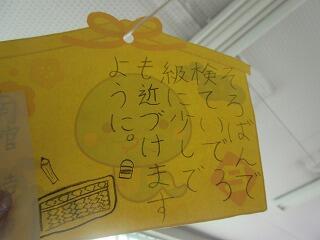 そろばんで
検ていで3
級に少しで
も近づけます
ように。